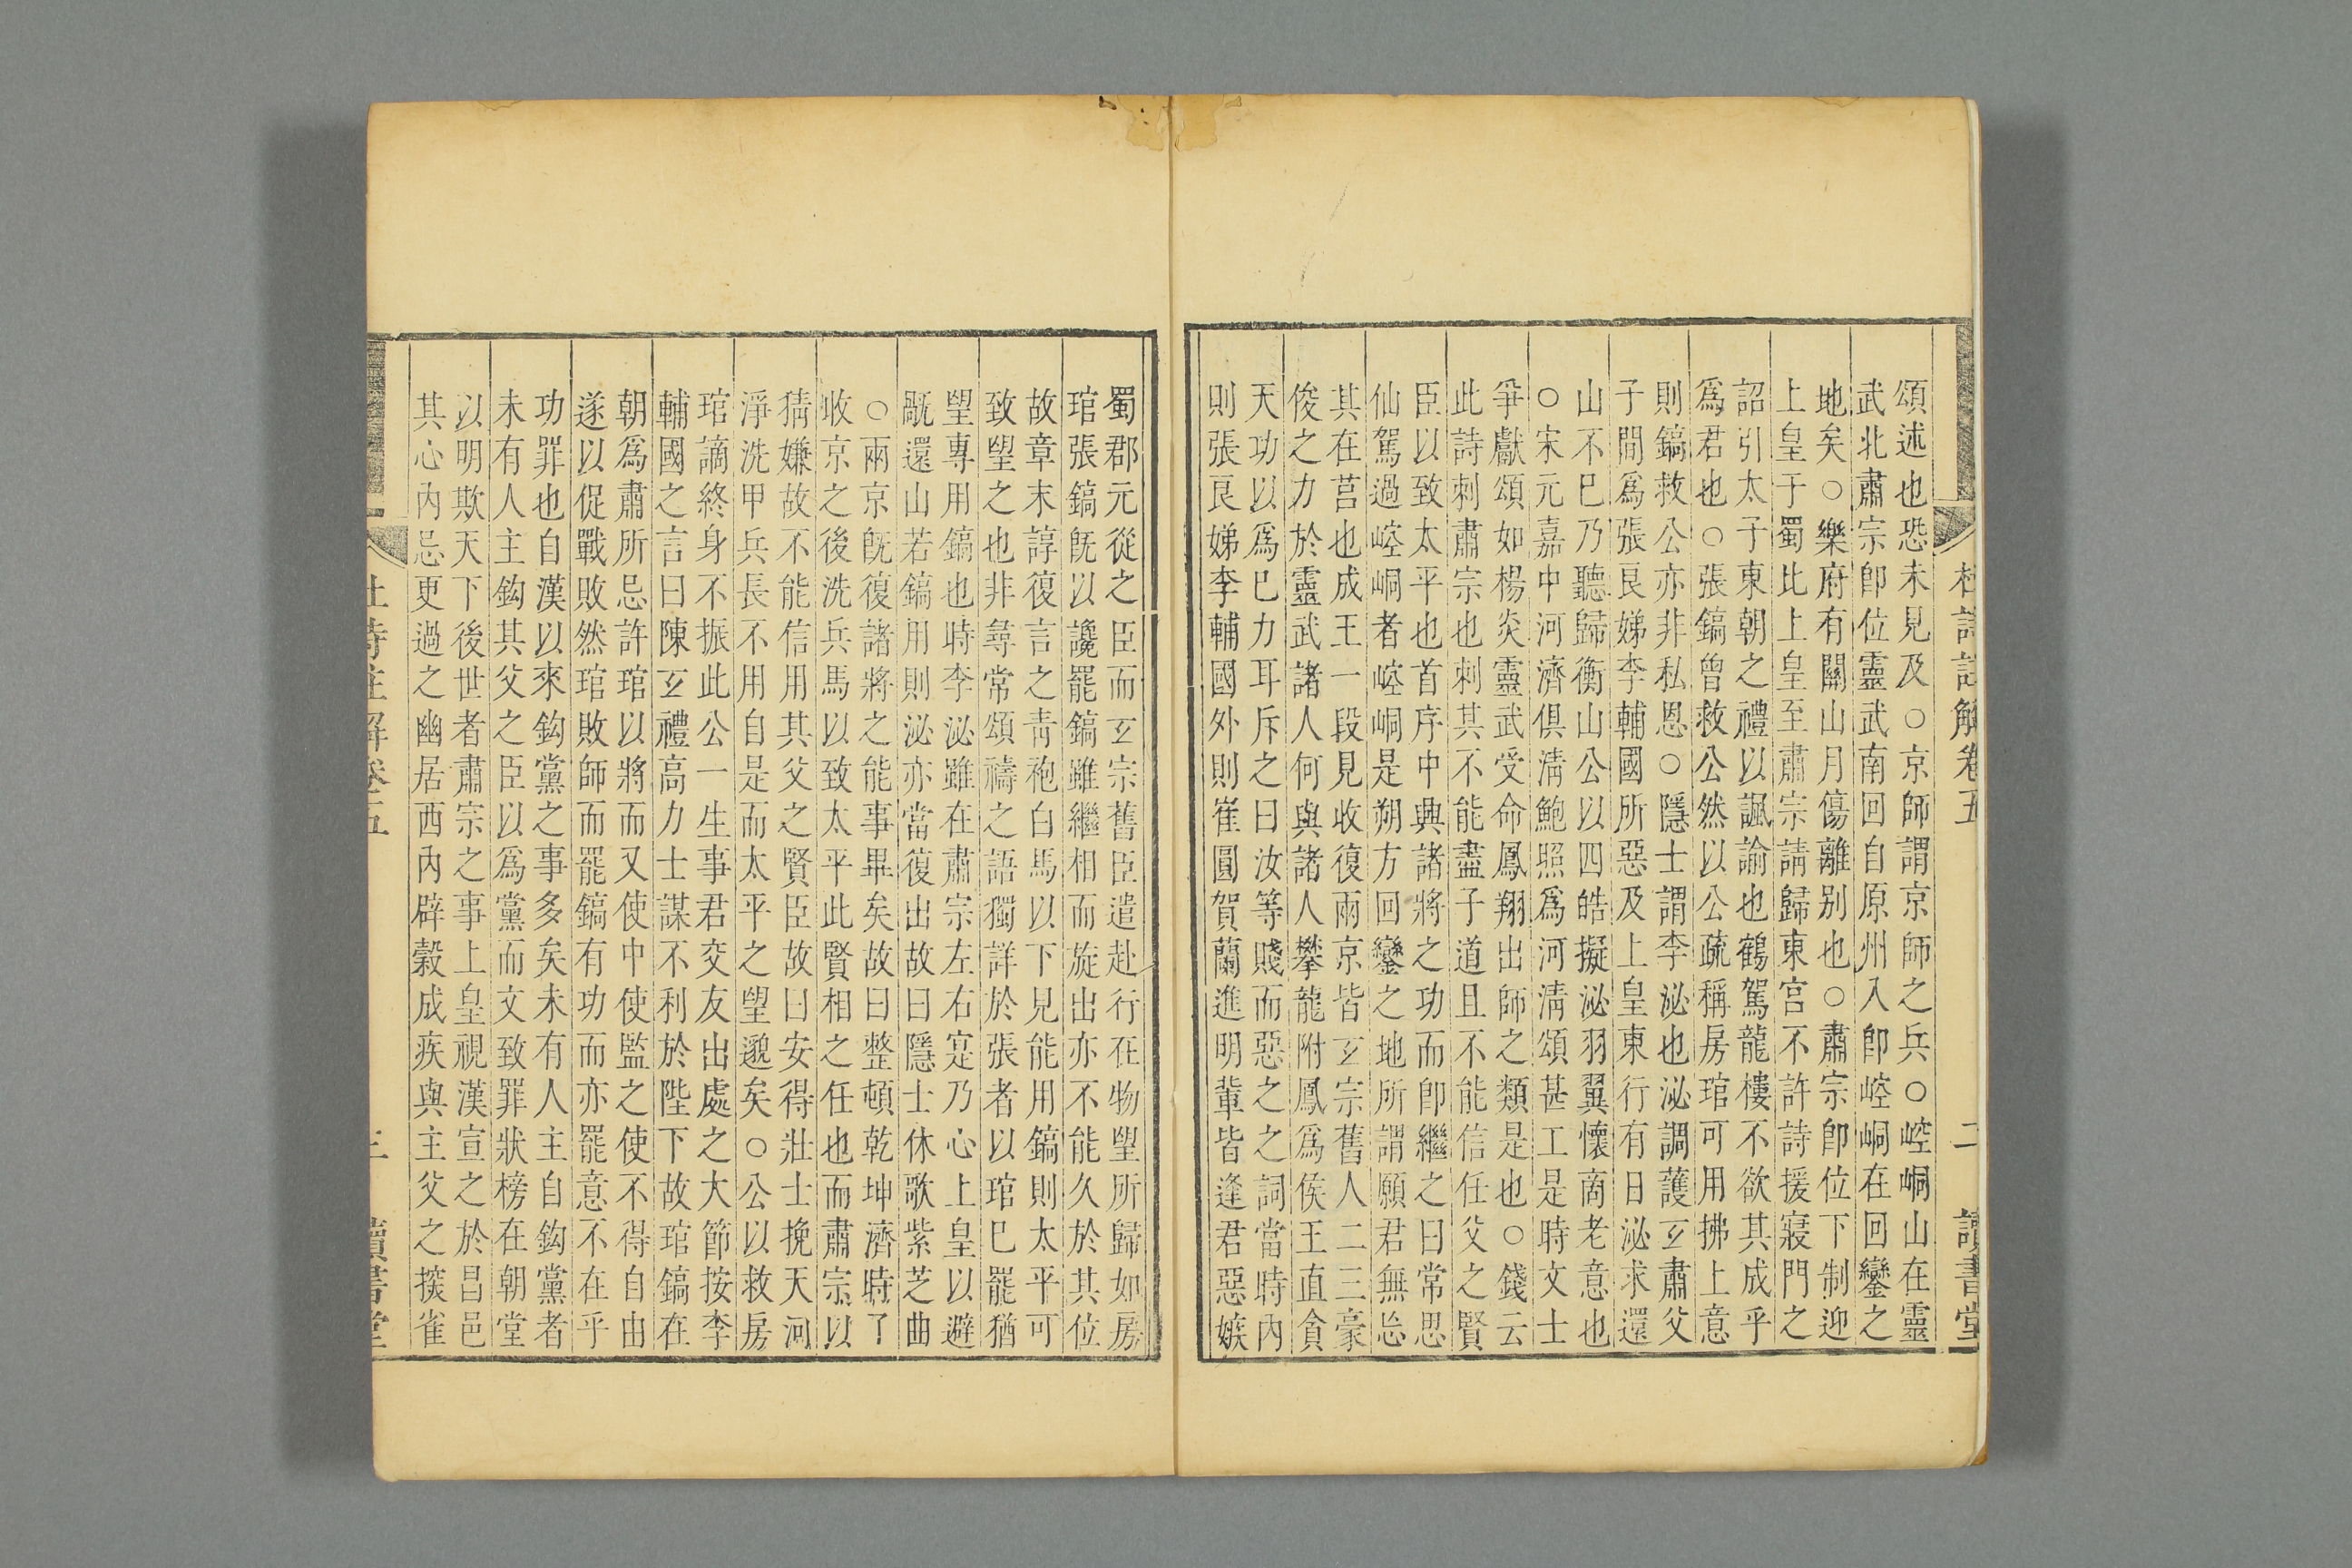 杜詩註解卷五 二 讀書堂
頌述也恐未見及○京師謂京師之兵○崆峒山在靈
武北肅宗卽位靈武南回自原州入卽崆峒在回鑾之
地矣○樂府有關山月傷離别也○肅宗卽位下制迎
上皇于蜀比上皇至肅宗請歸東宮不許詩援寢門之
詔引太子東朝之禮以諷諭也鶴駕龍樓不欲其成乎
爲君也○張鎬曾救公然以公疏稱房琯可用拂上意
則鎬救公亦非私恩○隱士謂李泌也泌調護玄肅父
子間爲張良娣李輔國所惡及上皇東行有日泌求還
山不巳乃聽歸衡山公以四皓擬泌羽翼懷商老意也
○宋元嘉中河濟俱淸鮑照爲河淸頌甚工是時文士
爭獻頌如楊炎靈武受命鳳翔出師之類是也○錢云
此詩刺肅宗也刺其不能盡子道且不能信任父之賢
臣以致太平也首序中興諸將之功而卽繼之曰常思
仙駕過崆峒者崆峒是朔方回鑾之地所謂願君無忘
其在莒也成王一段見收復兩京皆玄宗舊人二三豪
俊之力於靈武諸人何與諸人攀龍附鳳爲侯王直貪
天功以爲巳力耳斥之曰汝等賤而惡之之詞當時內
則張良娣李輔國外則崔圓賀蘭進明輩皆逢君惡嫉
蜀郡元從之臣而玄宗舊臣遣赴行在物望所歸如房
琯張鎬旣以讒罷鎬雖繼相而旋出亦不能久於其位
故章末諄復言之靑袍白馬以下見能用鎬則太平可
致望之也非尋常頌禱之語獨詳於張者以琯巳罷猶
望專用鎬也時李泌雖在肅宗左右寔乃心上皇以避
㪚還山若鎬用則泌亦當復出故曰隱士休歌紫芝曲
○兩京旣復諸將之能事畢矣故曰整頓乾坤濟時了
收京之後洗兵馬以致太平此賢相之任也而肅宗以
猜嫌故不能信用其父之賢臣故曰安得壯士挽天河
淨洗甲兵長不用自是而太平之望邈矣○公以救房
琯謫終身不振此公一生事君交友出處之大節按李
輔國之言曰陳玄禮高力士謀不利於陛下故琯鎬在
朝爲肅所忌許琯以將而又使中使監之使不得自由
遂以促戰敗然琯敗師而罷鎬有功而亦罷意不在乎
功罪也自漢以來鈎黨之事多矣未有人主自鈎黨者
未有人主鈎其父之臣以爲黨而文致罪狀榜在朝堂
以明欺天下後世者肅宗之事上皇視漢宣之於昌邑
其心內忌更過之幽居西內辟穀成疾與主父之探雀
杜詩註解卷五 三 讀書堂